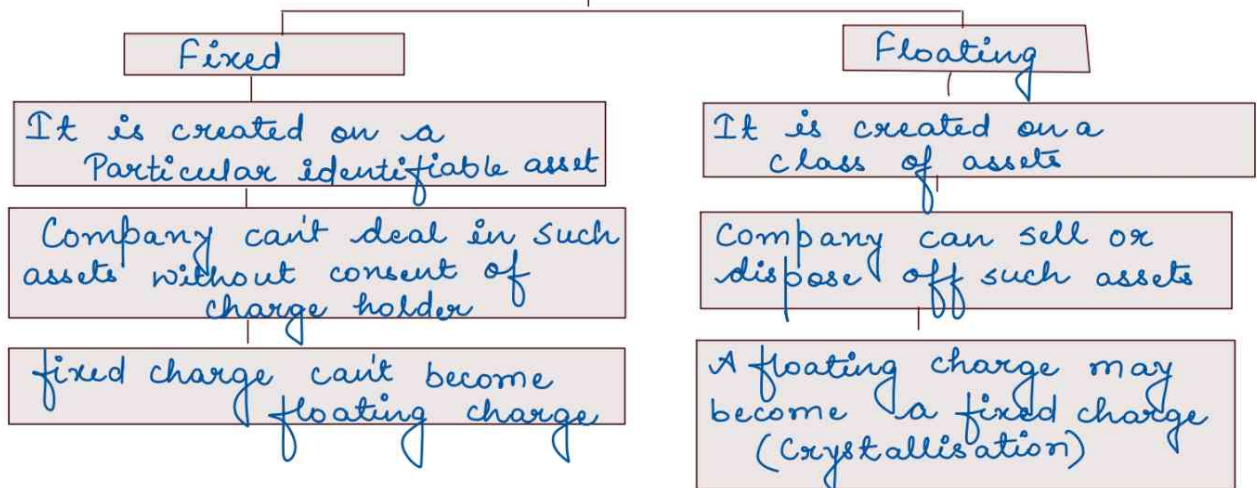 Fixed
It is created on a
Particular identifiable asset
Company can't deal in such
assets without consent of
charge holder
fixed charge can't become
floating charge
Floating
It is created on a
class of assets
Company can sell or
dispose off such assets
A floating charge may
become a fixed charge
(Crystallisation)